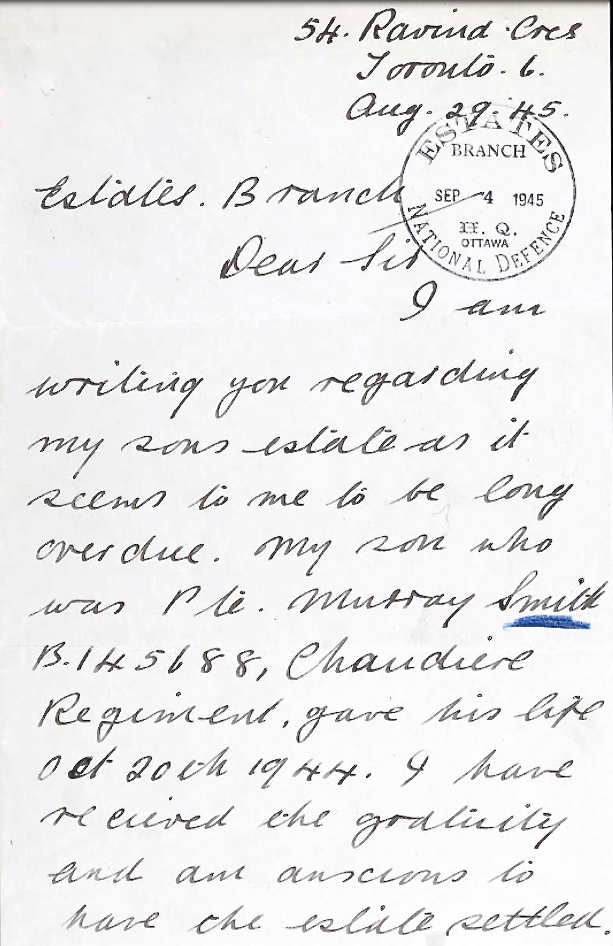 54. Ravind Cres
Toronto. 6.
Aug. 29. 45.
ESTATES
BRANCH
SEP -4 1945
H. Q.
OTTAWA
NATIONAL DEFENCE
Estates. Branch
Dear Sir
I am
writing you regarding
my sons estate as it
seems to me to be long
overdue. My son who
was Pte. Murray Smith
B.145688, Chaudiere
Regiment, gave his life
Oct 20th 1944. I have
recieved the gratuity
and am anscious to
have the estate settled.